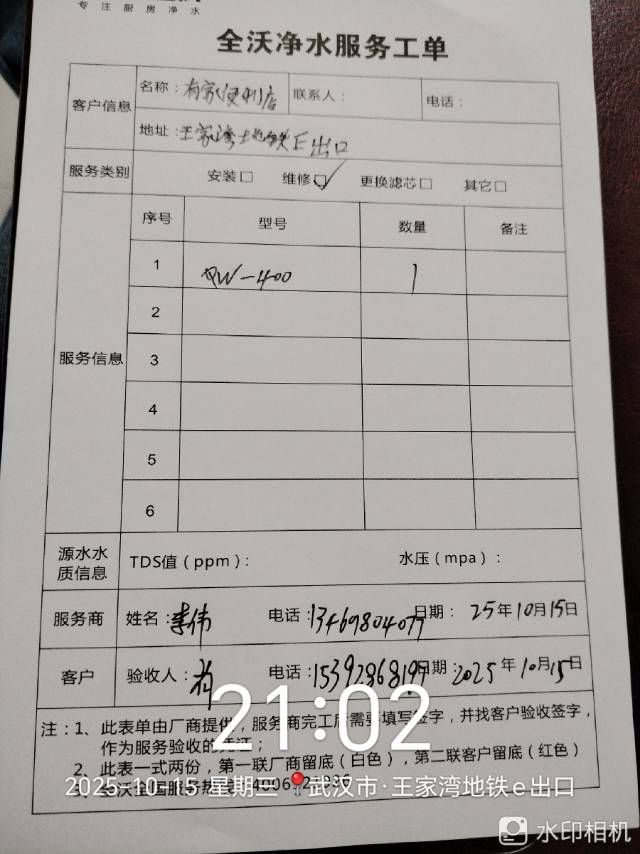 专注厨房净水
全沃净水服务工单
客户信息
名称：有家便利店 联系人： 电话：
地址：王家湾地铁E出口
服务类别 安装□ 维修☑ 更换滤芯□ 其它□
服务信息
序号 型号 数量 备注
1 QW-400 1
2
3
4
5
6
源水水质信息 TDS值（ppm）： 水压（mpa）：
服务商 姓名：李伟 电话：13469804077 日期：25年10月15日
客户 验收人： 电话：15392868199 日期：2025年10月15日
注：1、此表单由厂商提供，服务商完工后需要填写签字，并找客户验收签字，
作为服务验收的凭证；
2、此表一式两份，第一联厂商留底（白色），第二联客户留底（红色）
3、全沃全国服务热线：4006
21:02
2025-10-15 星期三 武汉市·王家湾地铁e出口
水印相机